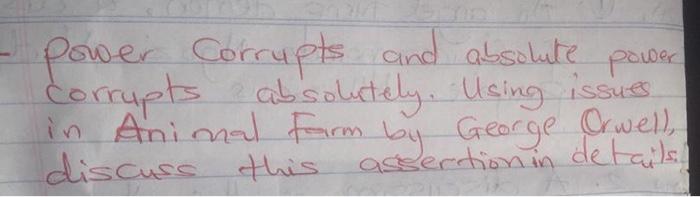 - Power Corrupts and absolute power
corrupts absolutely. Using issues
in Animal Farm by George Orwell,
discuss this assertion in details.